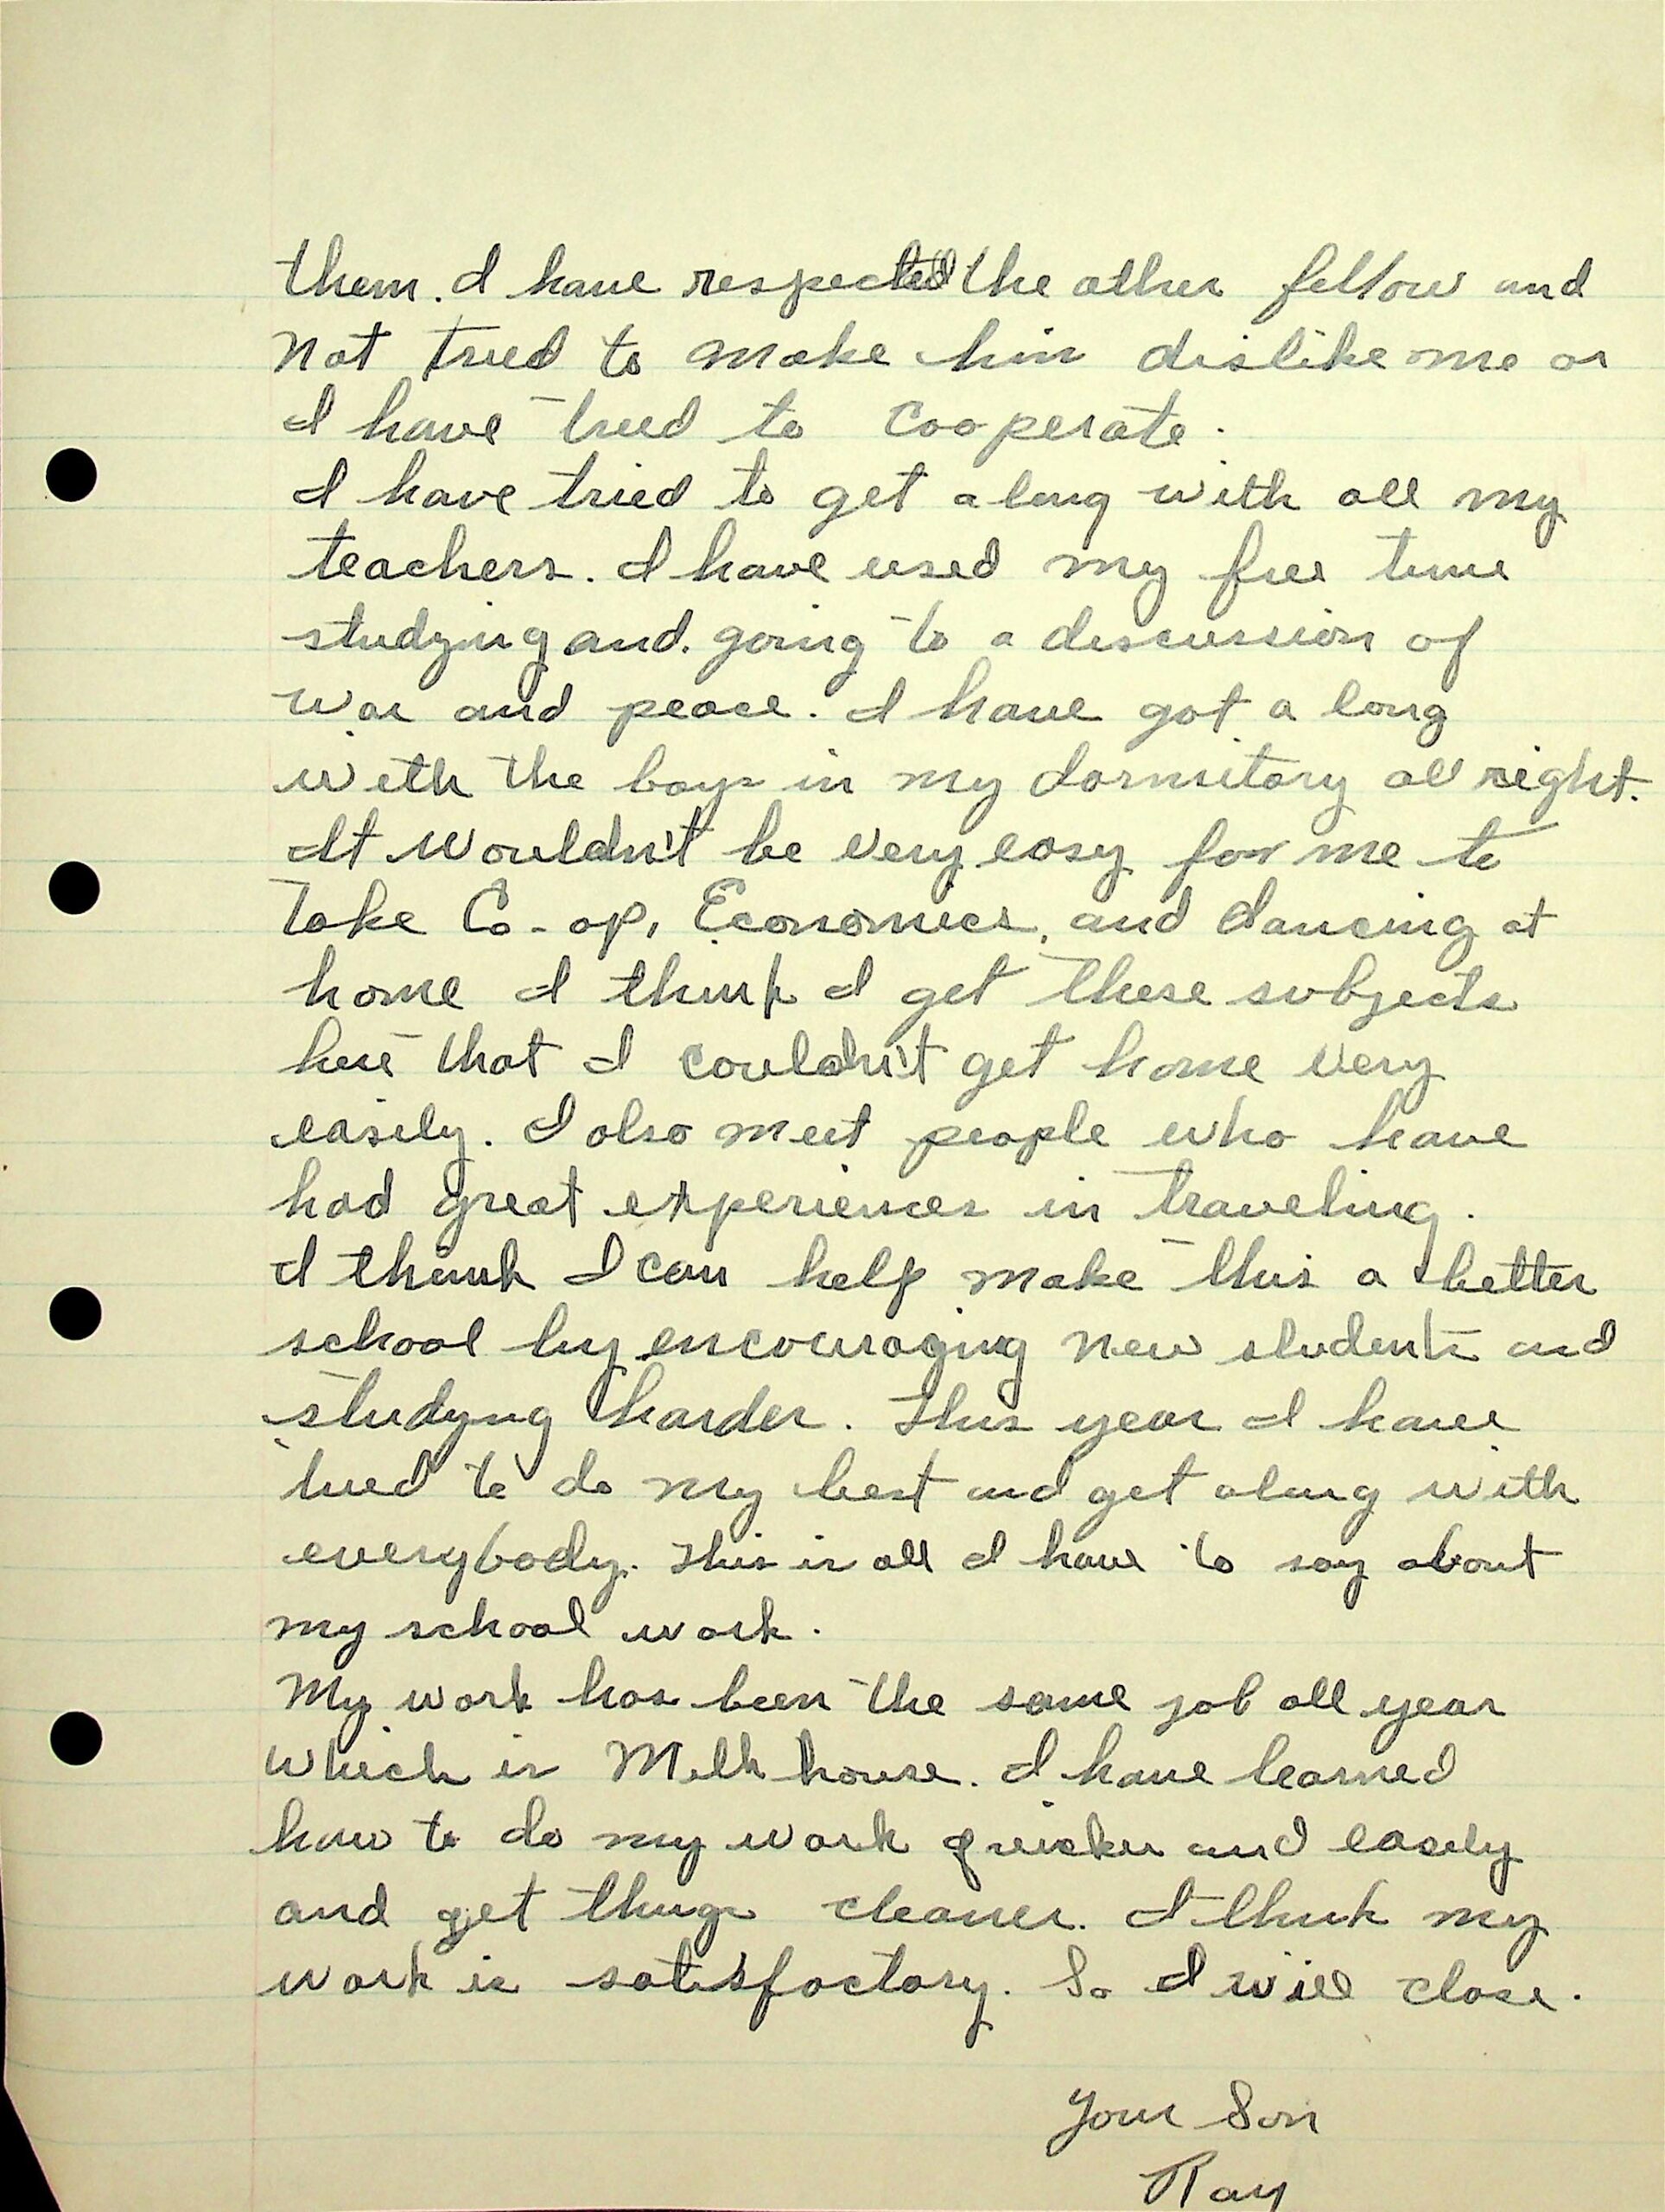 them. I have respected the other fellow and
not tried to make him dislike me or
I have tried to cooperate.
I have tried to get along with all my
teachers. I have used my free time
studying and. going to a discussion of
war and peace. I have got a long
with the boys in my dormitory all right.
It wouldn't be very easy for me to
take Co-op, Economics, and dancing at
home I think I get these subjects
here that I couldn't get home very
easily. I also meet people who have
had great experiences in traveling.
I think I can help make this a better
school by encouraging new students and
studying harder. This year I have
tried to do my best and get along with
everybody. This is all I have to say about
my school work.
My work has been the same job all year
which is Milk house. I have learned
how to do my work quicker and easily
and get things cleaner. I think my
work is satisfactory. So I will close.
Your Son
Ray